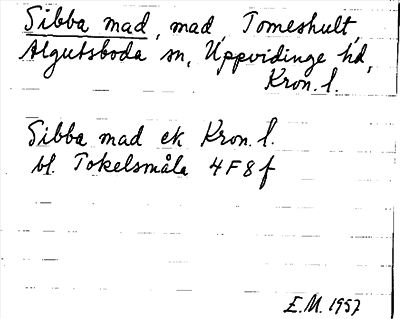 Sibba mad, mad, Tomeshult,
Algutsboda sn, Uppvidinge hd,
Kron. l.
Sibba mad ek Kron. l.
bl. Tokelsmåla 4F8f
E.M. 1957